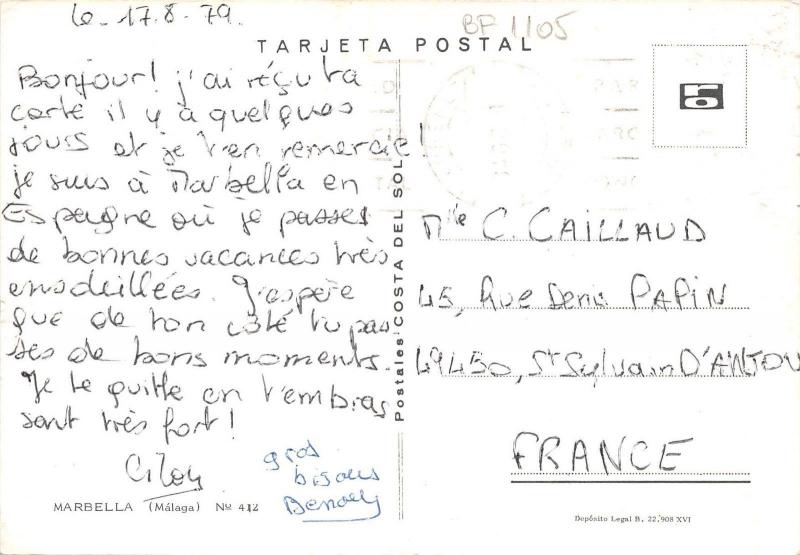 le 17.8.79.
BF 1105
TARJETA POSTAL
Bonjour! j'ai réçu ta
carte il y à quelques
jours et je t'en remercie!
je suis à Marbella en
Espagne où je passes
de bonnes vacances très
ensoleillées. J'espère
que de ton côté tu pas
ses de bons moments.
Je te quitte en t'embras
sant très fort!
gros
bisous
MARBELLA (Málaga) Nº 412
Postales COSTA DEL SOL
Mlle C. CAILLAUD
45, Rue Denis PAPIN
49450, St Sylvain D'ANJOU
FRANCE
Depósito Legal B. 22.908 XVI